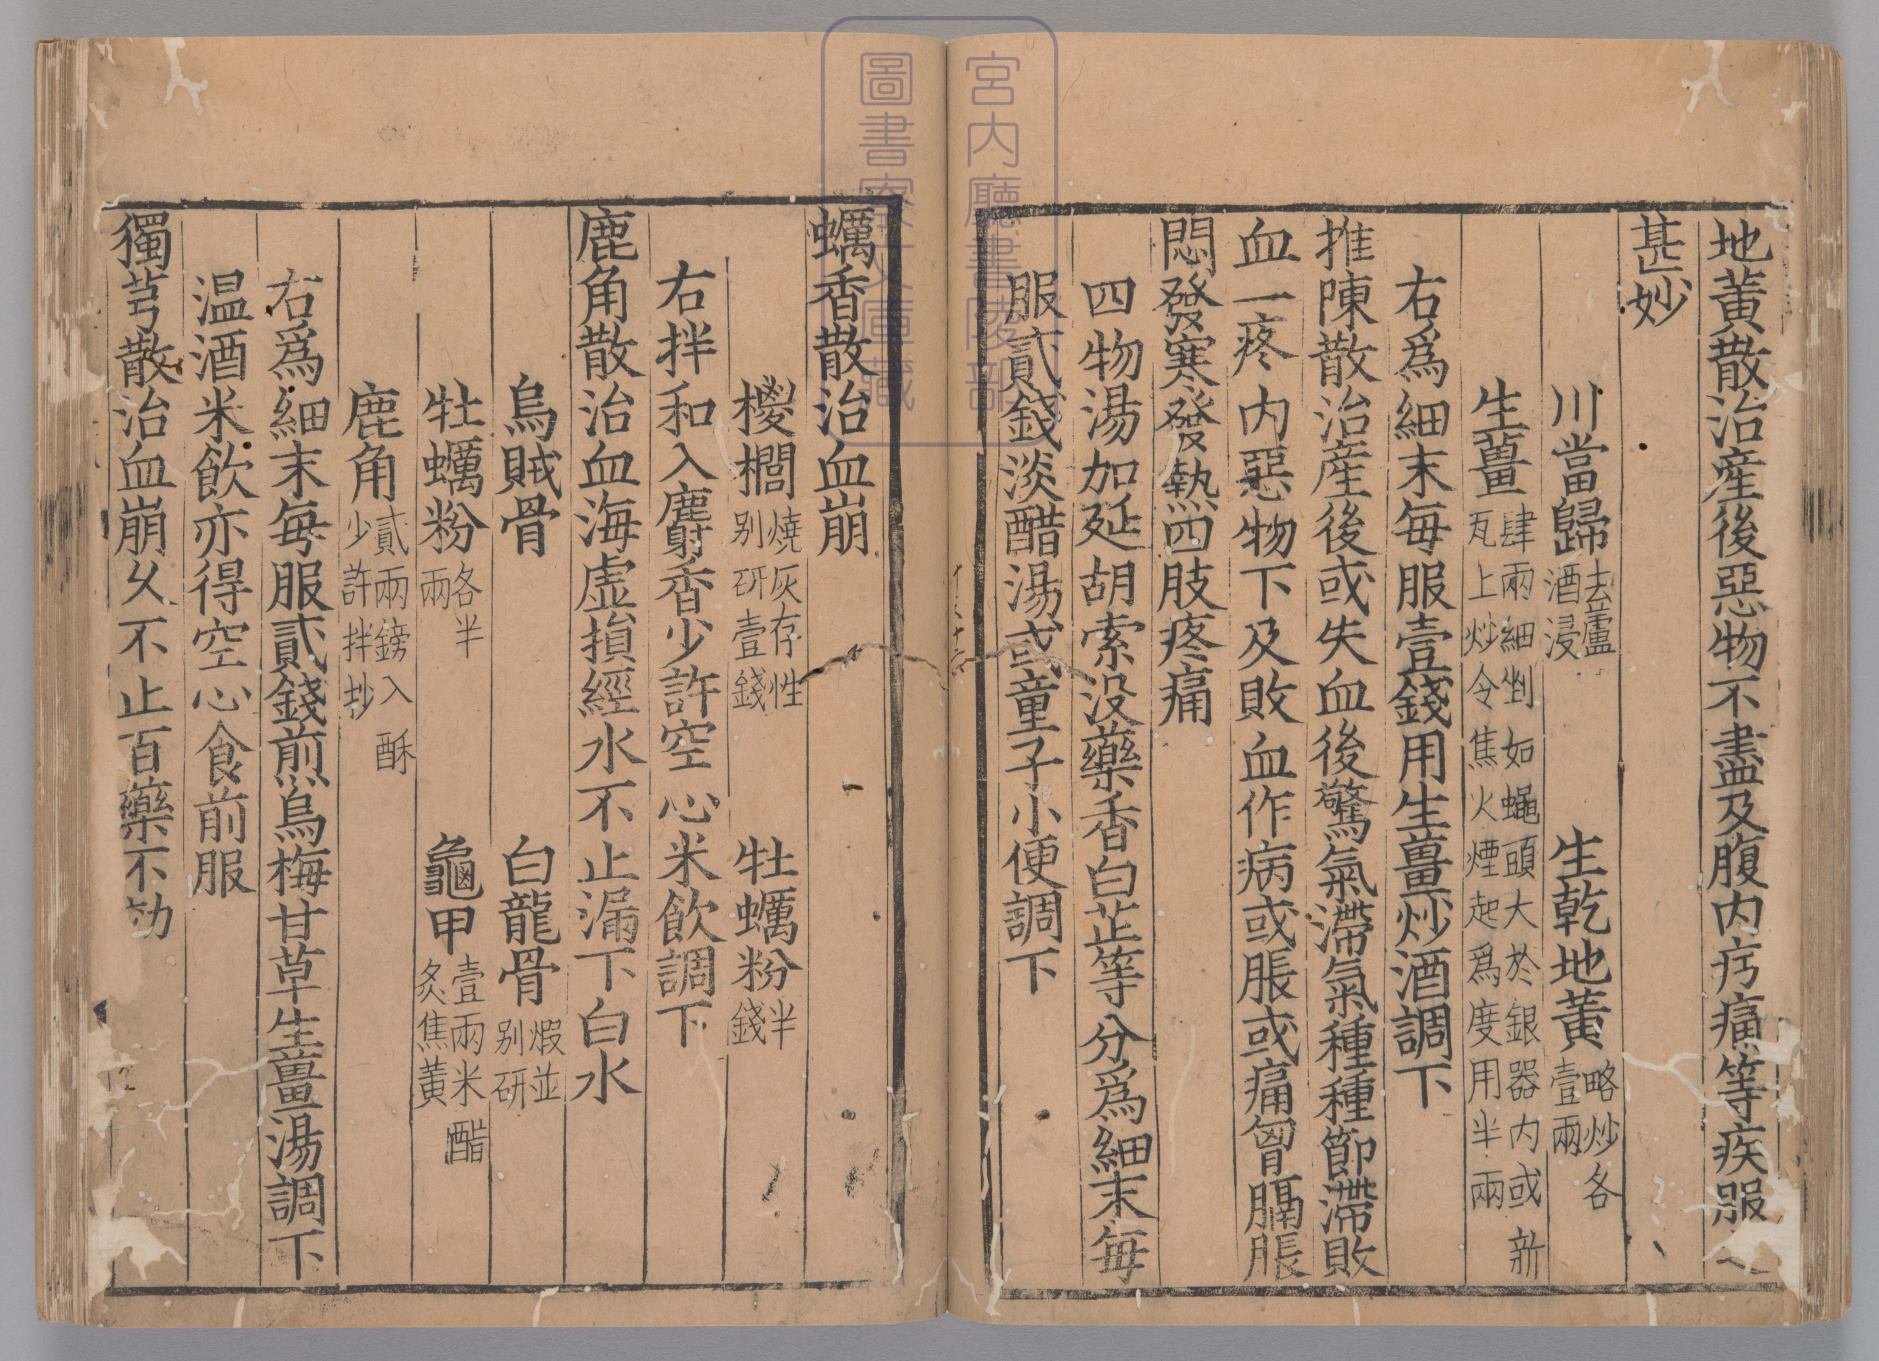 地黃散治產後惡物不盡及腹内㽱痛等疾服之
甚妙
川當歸去蘆酒浸 生乾地黃略炒各壹兩
生薑肆兩細剉如蠅頭大於銀器内或新瓦上炒令焦火煙起爲度用半兩
右爲細末每服壹錢用生薑炒酒調下
推陳散治產後或失血後驚氣滯氣種種節滯敗
血一疼内惡物下及敗血作病或脹或痛胷膈脹
悶發寒發熱四肢疼痛
四物湯加延胡索没藥香白芷等分爲細末每
服貳錢淡醋湯或童子小便調下
蠣香散治血崩
㯶櫚燒灰存性别研壹錢 牡蠣粉半錢
右拌和入麝香少許空心米飲調下
鹿角散治血海虛損經水不止漏下白水
烏賊骨 白龍骨煅並别研
牡蠣粉各半兩 龜甲壹兩米醋炙焦黃
鹿角貳兩鎊入酥少許拌抄
右爲細末每服貳錢煎烏梅甘草生薑湯調下
温酒米飲亦得空心食前服
獨芎散治血崩久不止百藥不効
宮内廳書陵部
圖書寮文庫藏